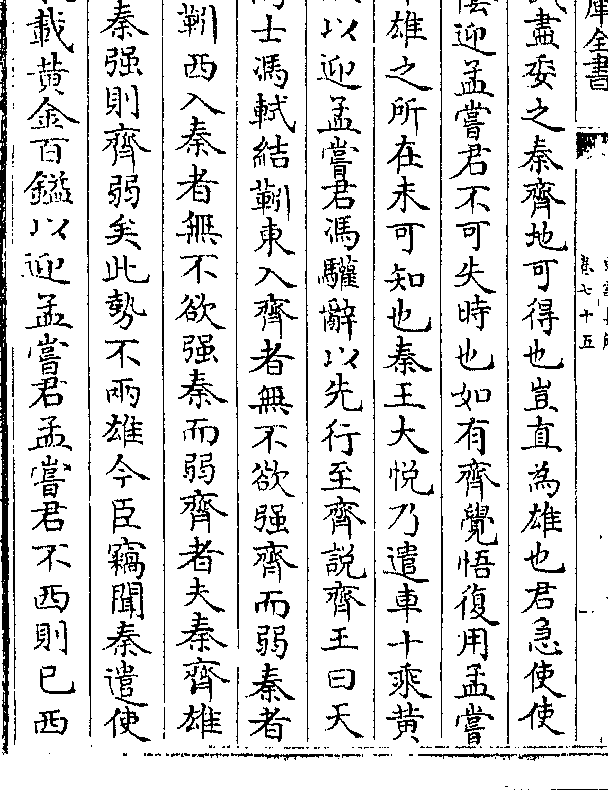 庫全書
卷七十五
盡委之秦齊地可得也豈直為雄也君急使使
陰迎孟嘗君不可失時也如有齊覺悟復用孟嘗
雄之所在未可知也秦王大悦乃遣車十乘黄
以迎孟嘗君馮驩辭以先行至齊説齊王曰天
士馮軾結靷東入齊者無不欲强齊而弱秦者
靷西入秦者無不欲强秦而弱齊者夫秦齊雄
秦强則齊弱矣此勢不兩雄今臣竊聞秦遣使
載黄金百鎰以迎孟嘗君孟嘗君不西則已西